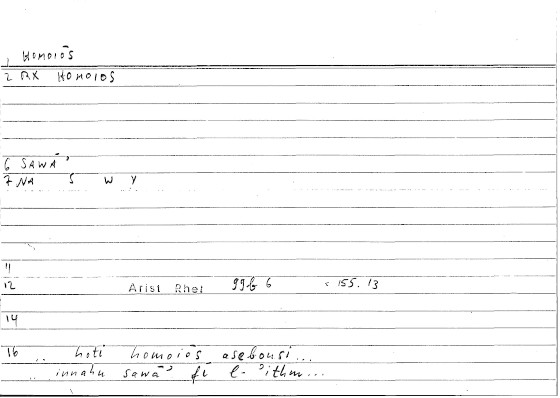 1 HOMOIŌS
2 AX HOMOIOS
6 SAWĀʾ
7 NA S W Y
11
12 Arist Rhet 99b 6 = 155.13
14
16 .. hoti homoiōs asebousi...
.. innahu sawāʾ fī l-ʾithm...